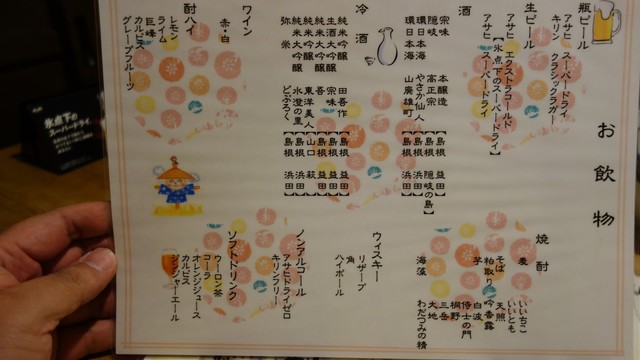 お飲物
瓶ビール
アサヒ スーパードライ
キリン クラシックラガー
生ビール
アサヒ エクストラコールド
【氷点下のスーパードライ】
アサヒ スーパードライ
酒
宗味 本醸造
隠岐 高正宗 【島根 隠岐の島】
環日本海 やさか仙人 【島根 浜田】
環日本海 山廣雄町 【島根 浜田】
冷酒
純米吟醸 田吾作 【島根 益田】
生酒大吟醸 宗味 【島根 益田】
純米大吟醸 吾 【島根 益田】
純米大吟醸 東洋美人 【山口 萩】
純米吟醸 水澄の里 【島根 浜田】
弥栄 どぶろく 【島根 浜田】
ワイン
赤・白
酎ハイ
レモン
ライム
巨峰
カルピス
グレープフルーツ
焼酎
麦 いいちこ
いいとも
そば 天照
粕取り 吟香露
芋 白波
侍士の門
桐野
三岳
大地
海藻 わだつみの精
ウィスキー
リザーブ
角
ハイボール
ノンアルコール
アサヒドライゼロ
キリンフリー
ソフトドリンク
ウーロン茶
コーラ
オレンジジュース
カルピス
ジンジャーエール
氷点下の
スーパードライ